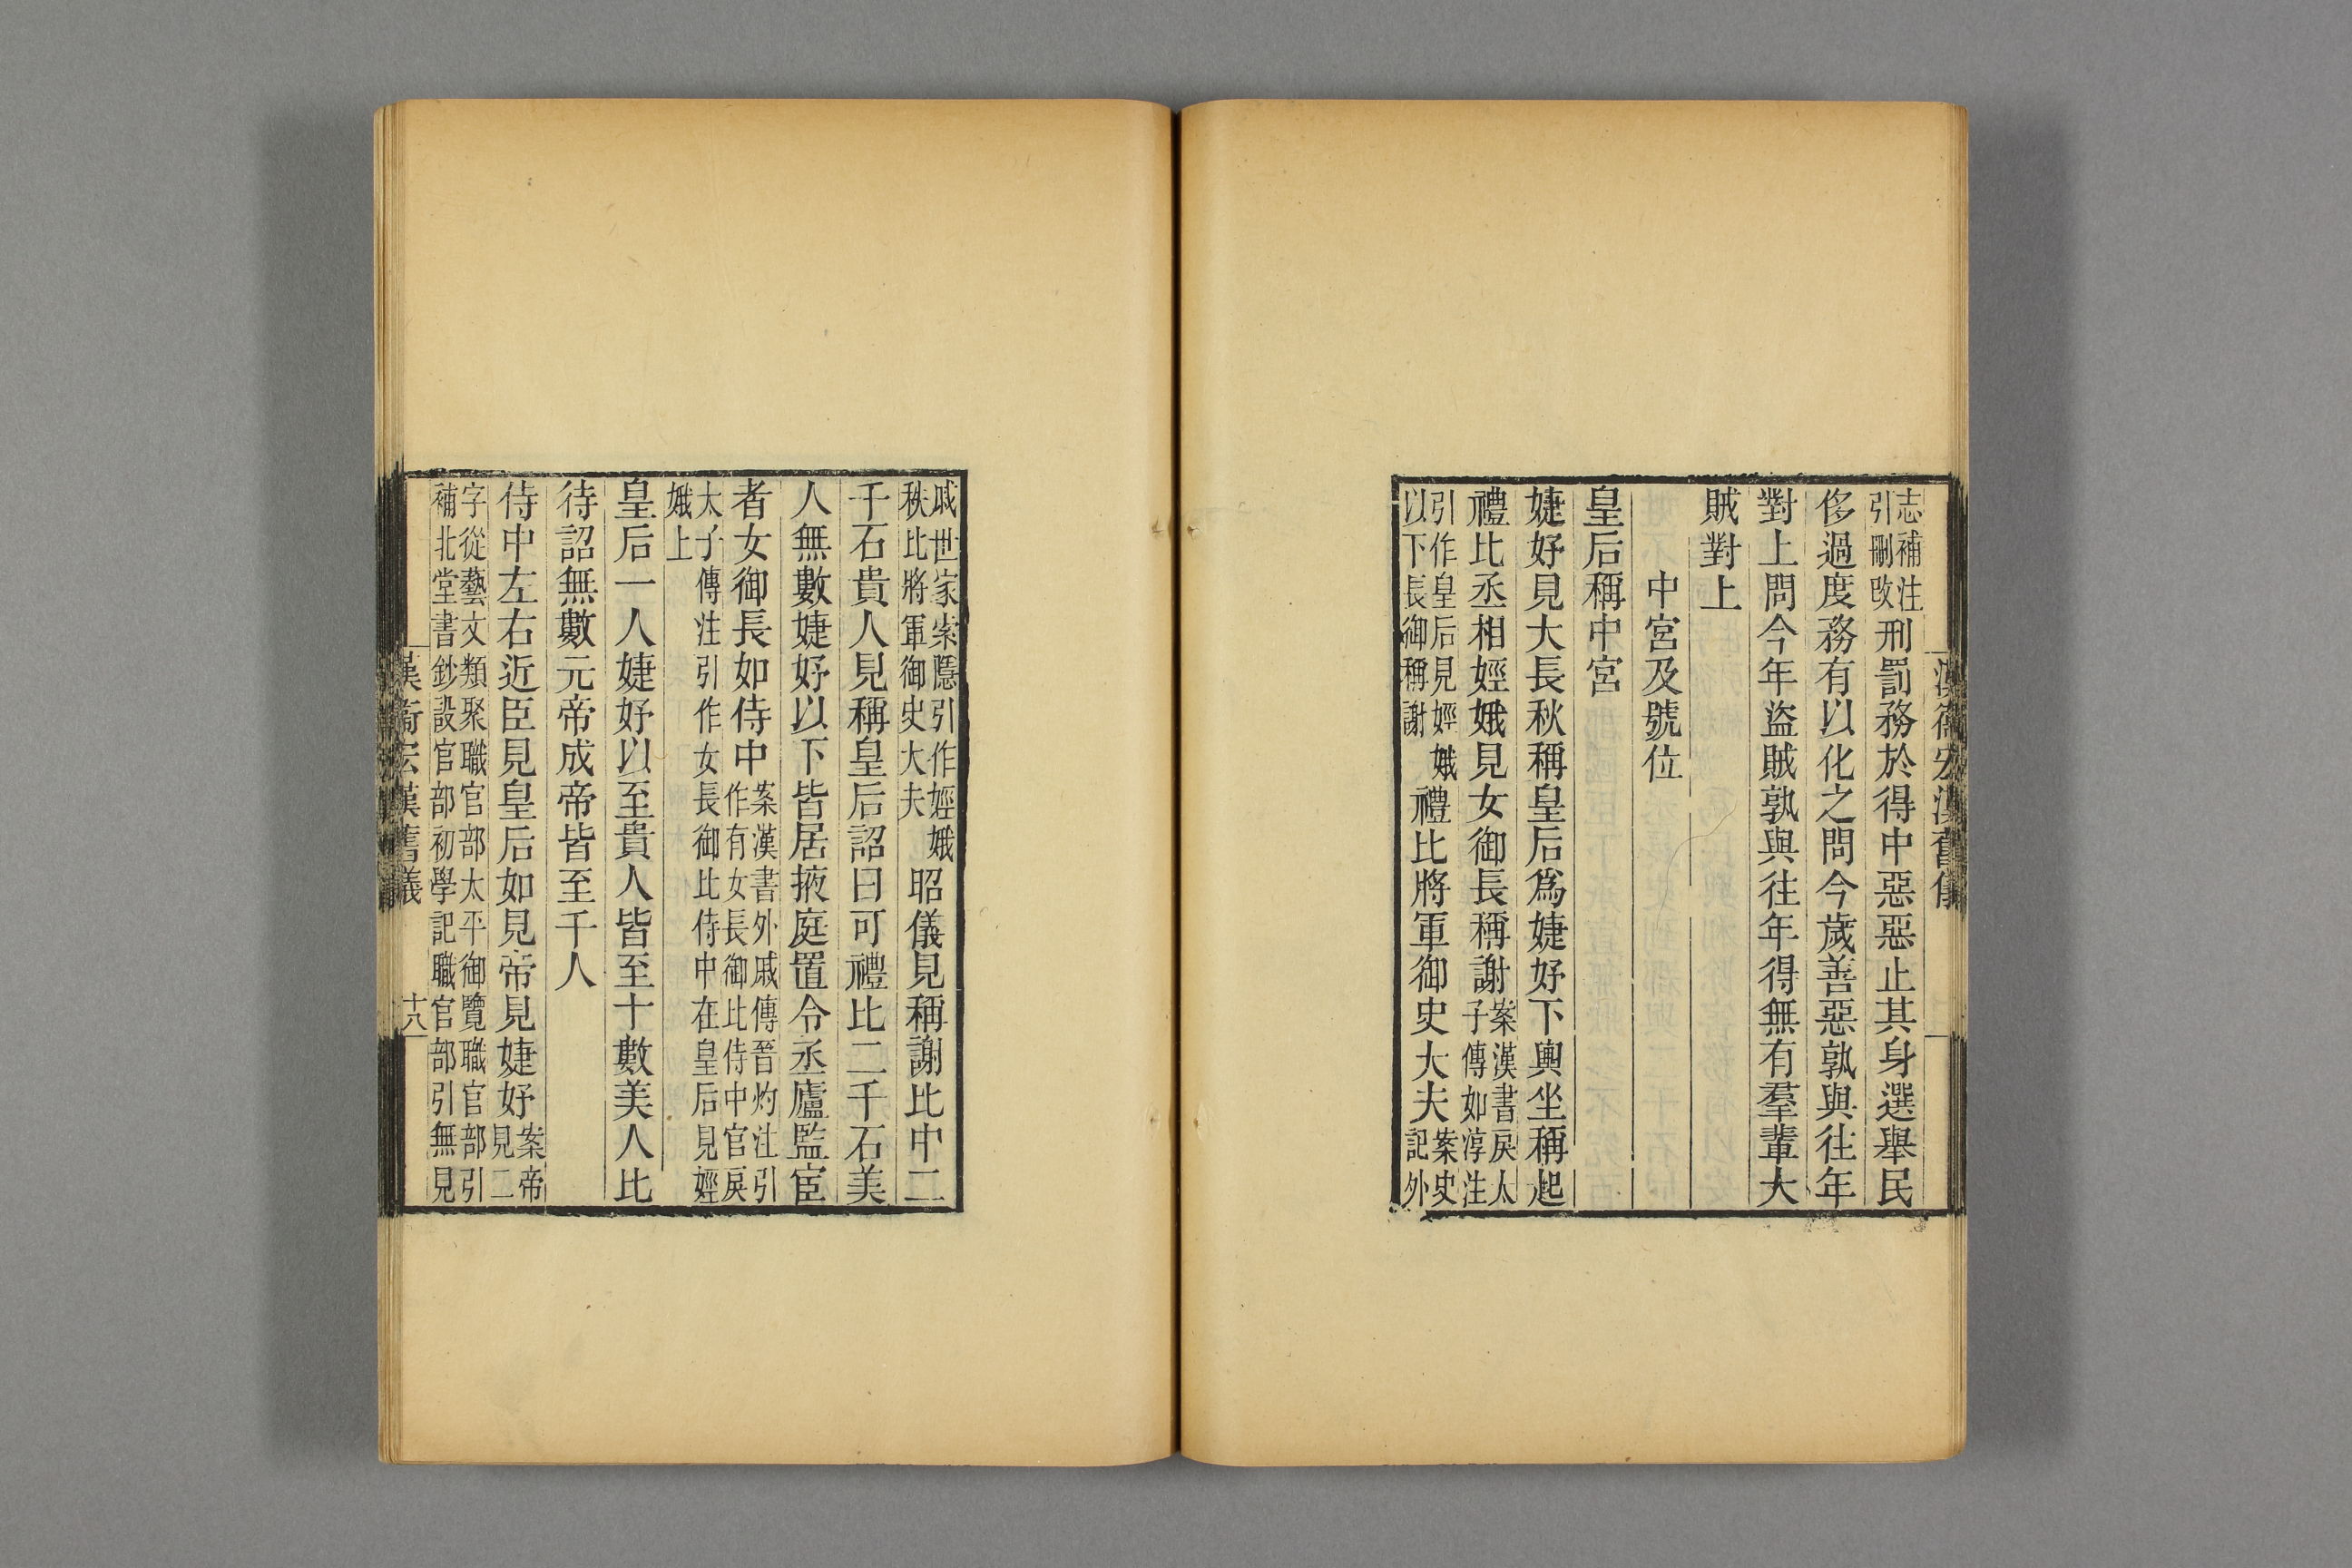 漢衞宏漢舊儀
志補注
引刪改
刑罰務於得中惡惡止其身選舉民
侈過度務有以化之問今歲善惡孰與往年
對上問今年盜賊孰與往年得無有羣輩大
賊對上
中宮及號位
皇后稱中宮
婕妤見大長秋稱皇后爲婕妤下輿坐稱起
禮比丞相娙娥見女御長稱謝
案漢書戾太
子傳如淳注
引作皇后見娙娥
以下長御稱謝
禮比將軍御史大夫
案史
記外
戚世家索隱引作娙娥
秩比將軍御史大夫
昭儀見稱謝比中二
千石貴人見稱皇后詔曰可禮比二千石美
人無數婕妤以下皆居掖庭置令丞廬監宦
者女御長如侍中
案漢書外戚傳晉灼注引
作有女長御比侍中官戾
太子傳注引作女長御比侍中在皇后見娙
娥上
皇后一人婕妤以至貴人皆至十數美人比
待詔無數元帝成帝皆至千人
侍中左右近臣見皇后如見帝見婕妤
案帝
見二
字從藝文類聚職官部太平御覽職官部引
補北堂書鈔設官部初學記職官部引無見
漢衞宏漢舊儀
十八